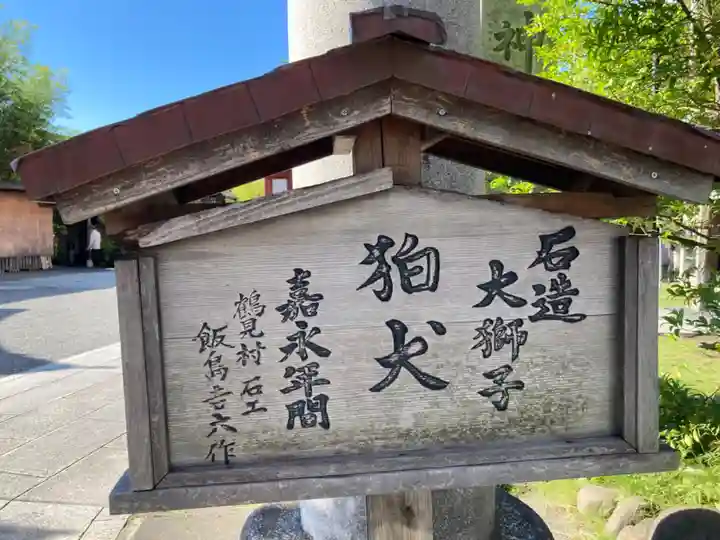 石造
大獅子
狛犬
嘉永年間
鶴見村石工
飯島吉六作
神